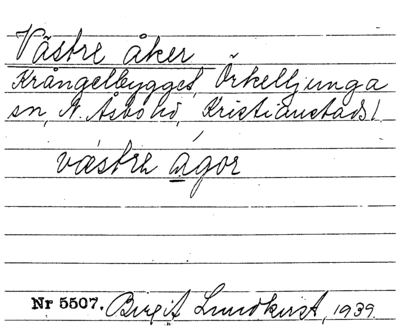 Västre åker
Krångelbygget, Örkelljunga
sn, N. Åsbo hd, Kristianstads l
västre ågor
Nr 5507. Birgit Lundkvist, 1939.